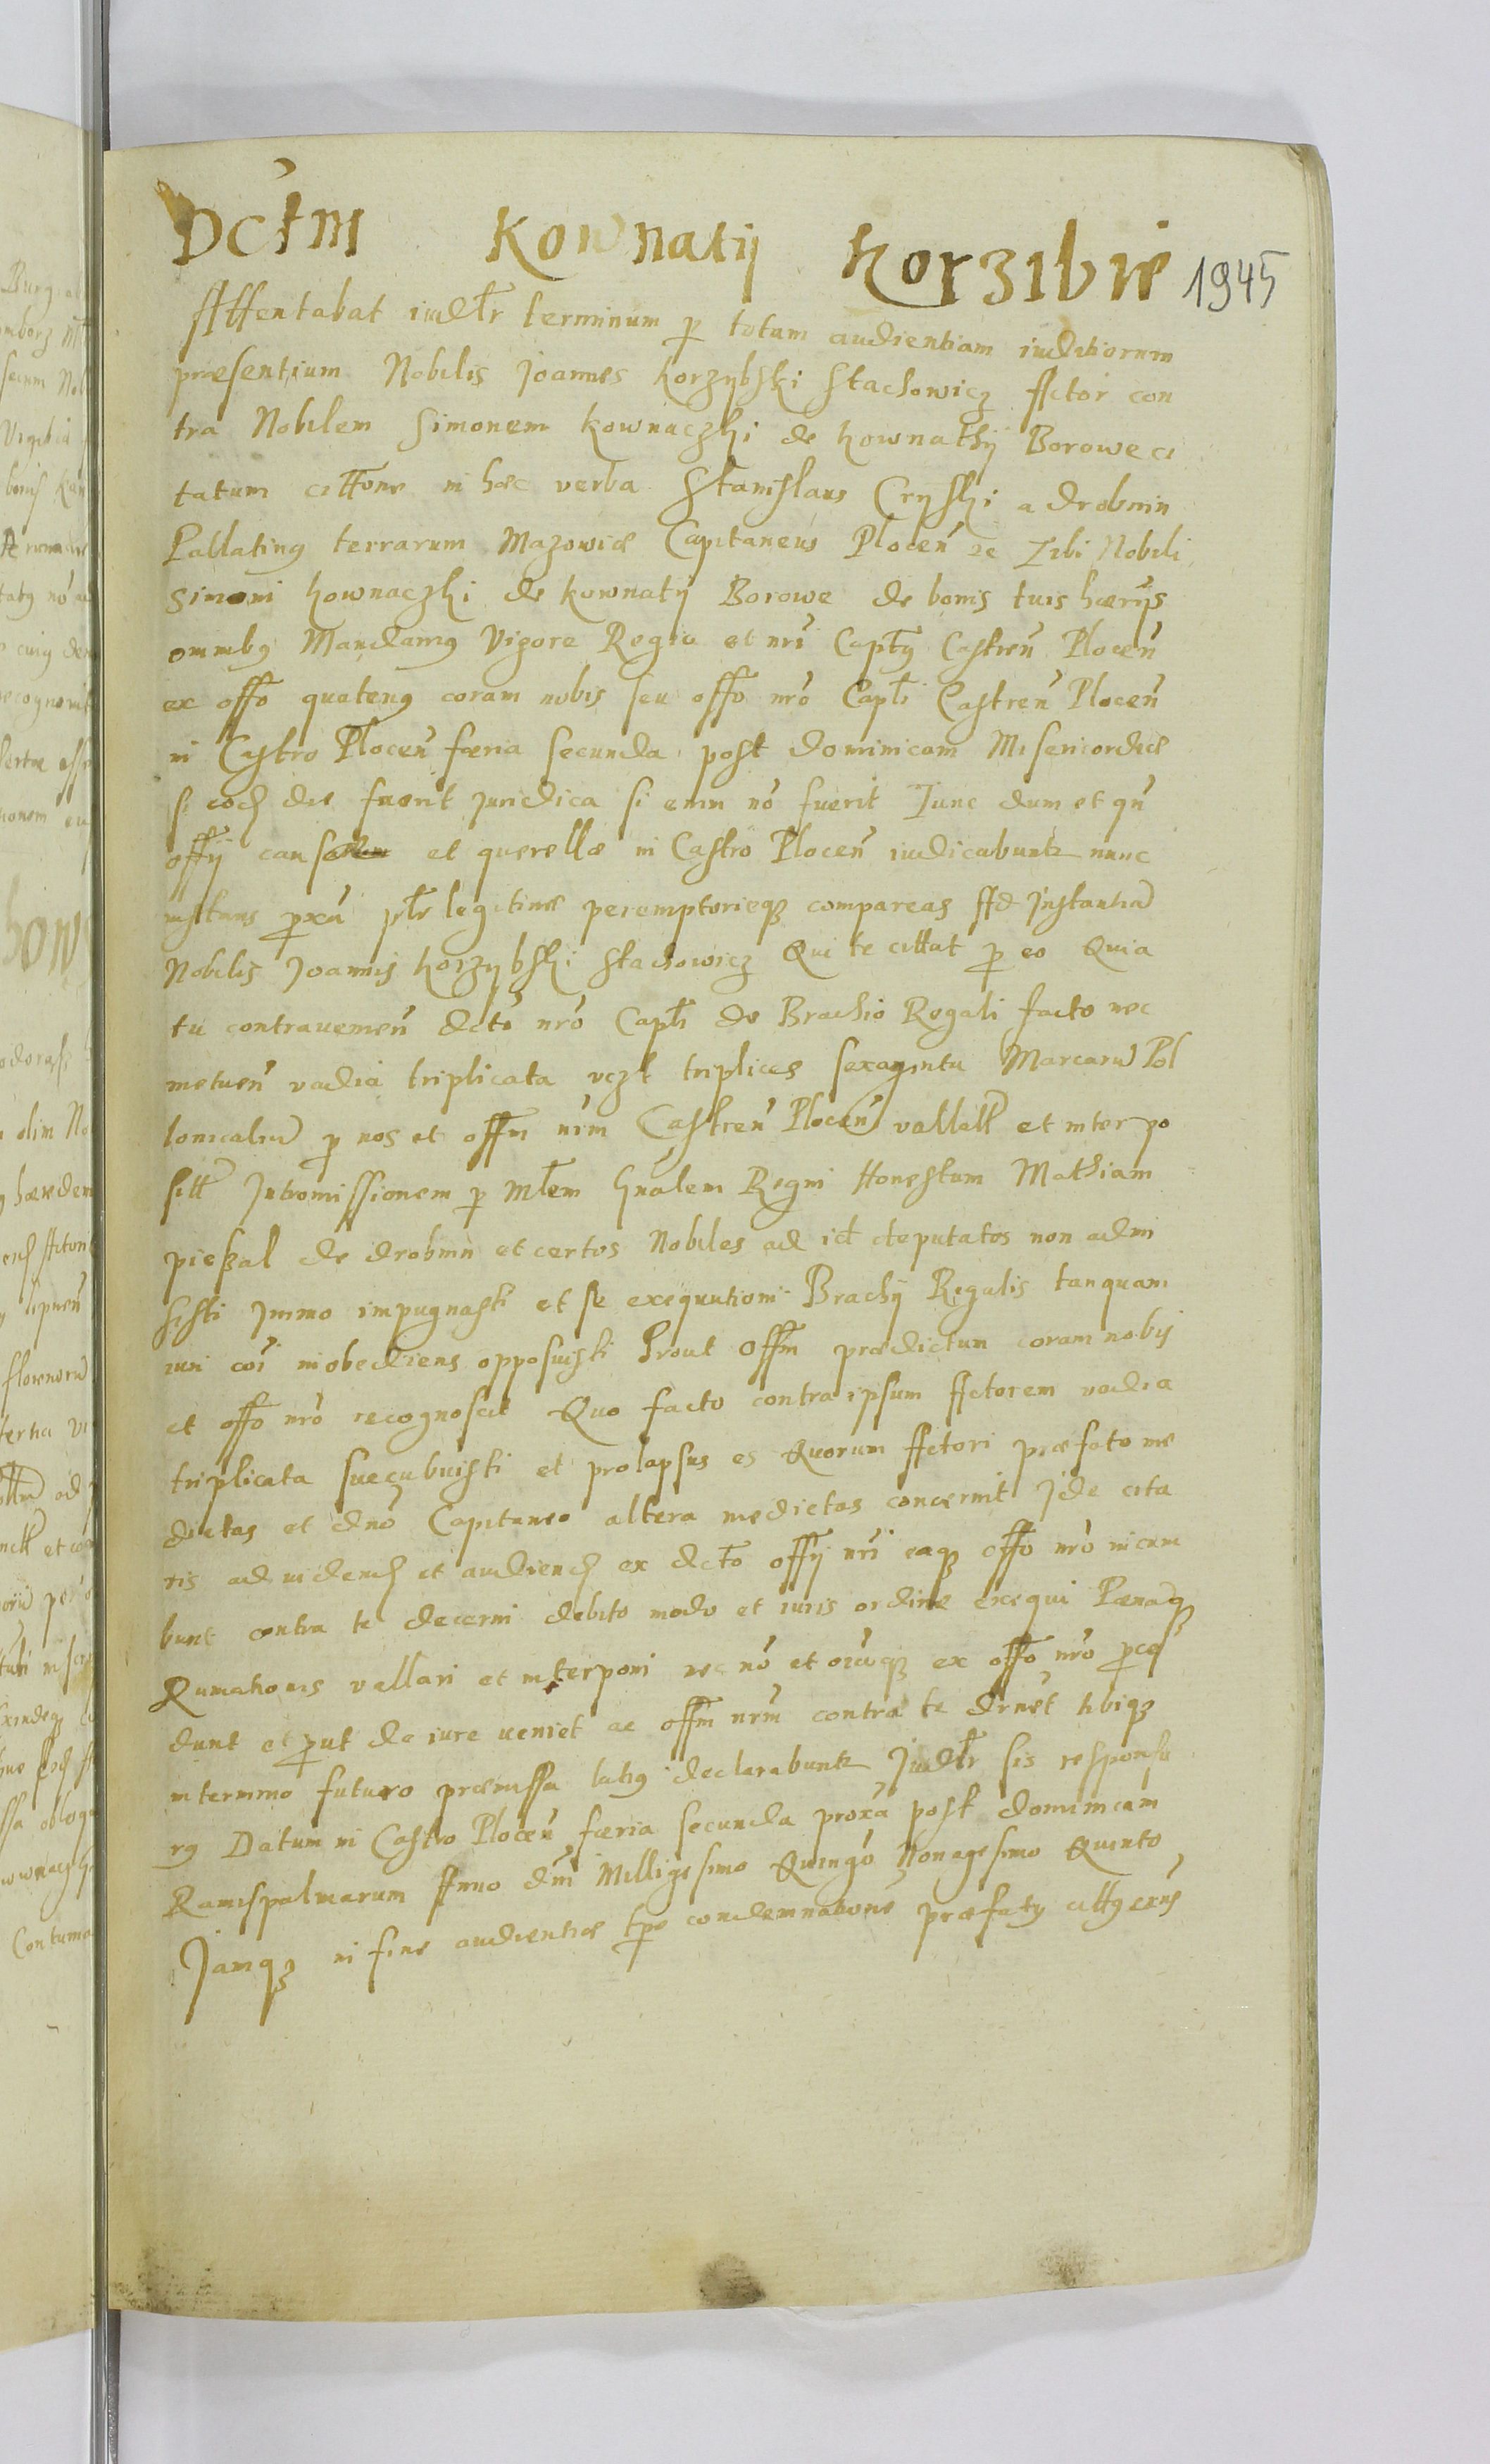 Dctm Kownatij Korzibie 1945
Attentabat iudlr terminum p totam audientiam iuditiorum
præsentium Nobilis Joannes Korzybski Stachowicz Actor con
tra Nobilem Simonem Kownaczki de Kownathij Borowe ci
tatum cittone in hæc verba Stanislaus Cryski a Drobnin
Pallatinus terrarum Mazowiæ Capitaneus Plocen̄ ꝛc Tibi Nobili
Simoni Kownaczki de Kownatij Borowe de bonis tuis hærijs
omnibus Mandamus Vigore Regia et nrī Captus Castren̄ Plocen̄
ex offo quatenus coram nobis seu offo nrō Capli Castren̄ Plocen̄
in Castro Plocen̄ færia secunda post dominicam Misericordiæ
si eod die fuerit juridica si enim nō fuerit Tunc dum et qn̄
offij causæ et querellæ in Castro Plocen̄ iudicabuntr nunc
instans proxā plr legitime peremptorieqz compareas Ad Instantiā
Nobilis Joannis Korzybski Stachowicz Qui te cittat p eo Quia
tu contravenien̄ dcto nrō Capli de Brachio Regali facto nec
metuen̄ vadia triplicata vczt triplices sexaginta Marcarū Pol
lonicaliū p nos et offm nrm Castren̄ Plocen̄ vallatt et interpo
sitt Intromissionem p Mlem Gnalem Regni Honestum Mathiam
pieszal de drobnin et certos Nobiles ad id deputatos non admi
sisti Immo impugnasti et se exequutioni Brachij Regalis tanquam
iuri coi inobediens opposuisti Prout Offm prædictum coram nobis
et offo nrō recognoscit Quo facto contra ipsum Actorem vadia
triplicata succubuisti et prolapsus es Quorum Actori præfato me
dietas et dnō Capitaneo altera medietas concernit Ide cita
ris ad videnđ et audienđ ex dcto offij nrī eaqz offo nrō incum
bunt contra te decerni debito modo et iuris ordine exequi Pænaqz
Rumationis vallari et interponi nec nō et oīaqz ex offo nrō proce
dunt et prout de iure veniet ac offm nrm contra te drnet tibiqz
in termino futuro præmissa latius declarabuntr Judlr sis responsu
rus Datum in Castro Plocen̄ færia secunda proxā post dominicam
Ramispalmarum Anno dni Milligesimo Quingō Nonagesimo Quinto
Jamqz in fine audientiæ tpe condemnationē præfatus